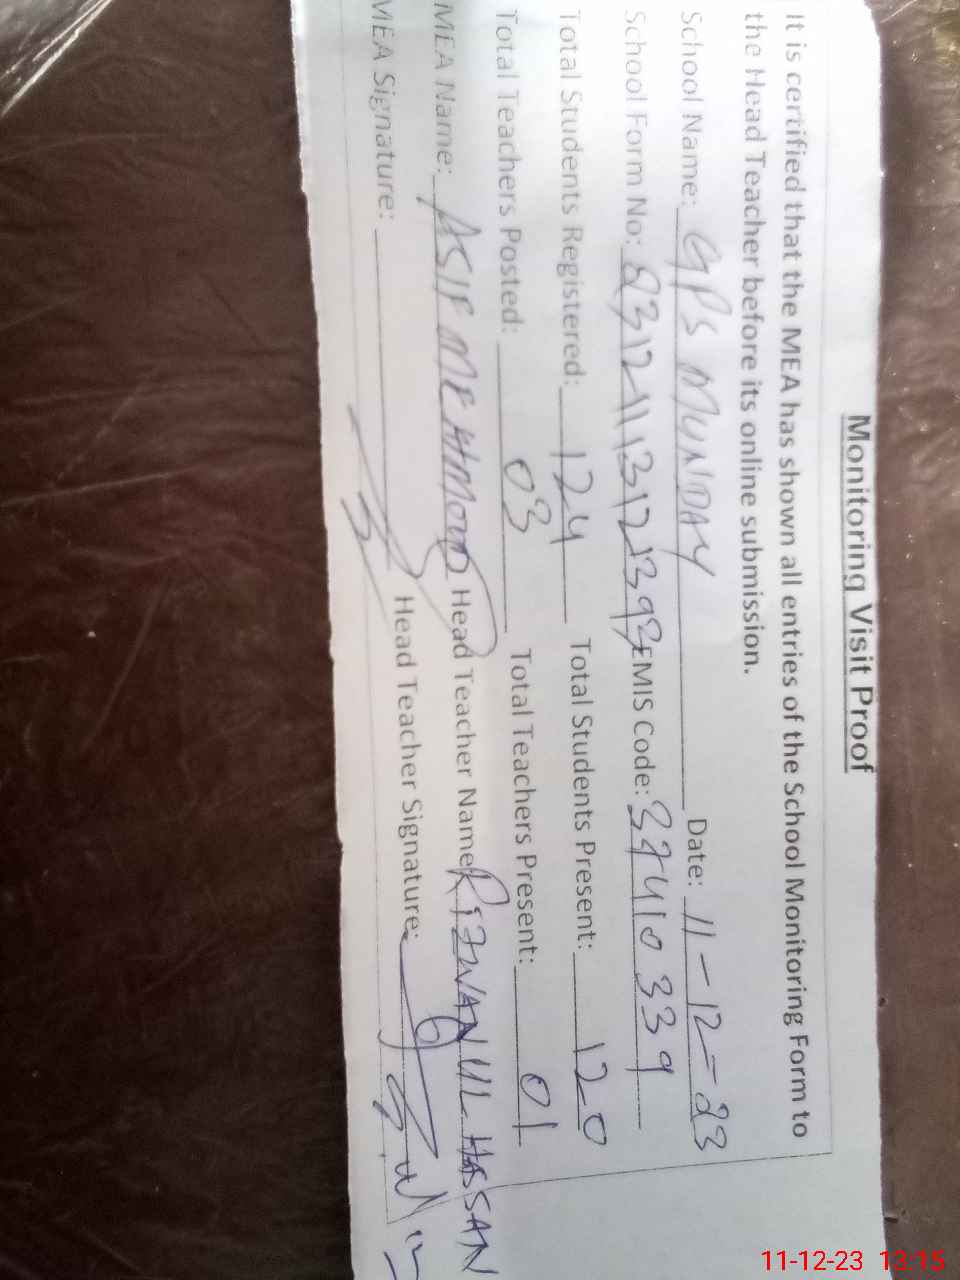 Monitoring Visit Proof
It is certified that the MEA has shown all entries of the School Monitoring Form to
the Head Teacher before its online submission.
School Name: GPS MUNDAY Date: 11-12-23
School Form No: EMIS Code: 37410339
Total Students Registered: 124 Total Students Present: 120
Total Teachers Posted: 03 Total Teachers Present: 01
MEA Name: ASIF MEHMOOD Head Teacher Name: RIZWAN UL HASSAN
MEA Signature: Head Teacher Signature:
11-12-23 13:15